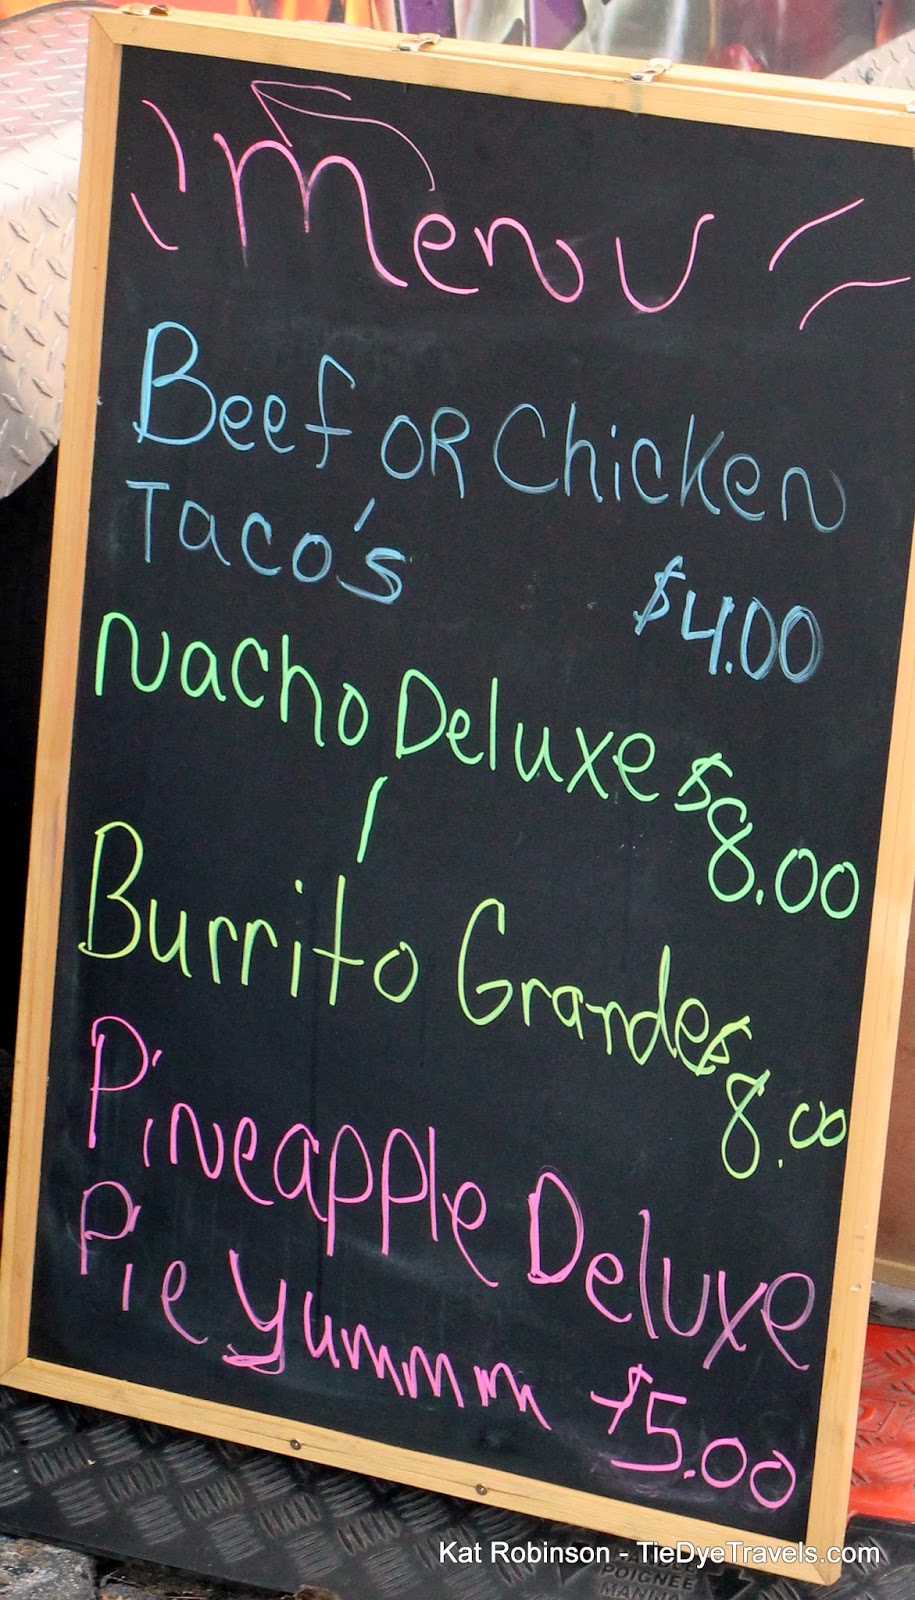 Menu
Beef OR Chicken
Taco's $4.00
Nacho Deluxe $8.00
Burrito Grande $8.00
Pineapple Deluxe
Pie yummm $5.00
Kat Robinson - TieDyeTravels.com
POIGNEE